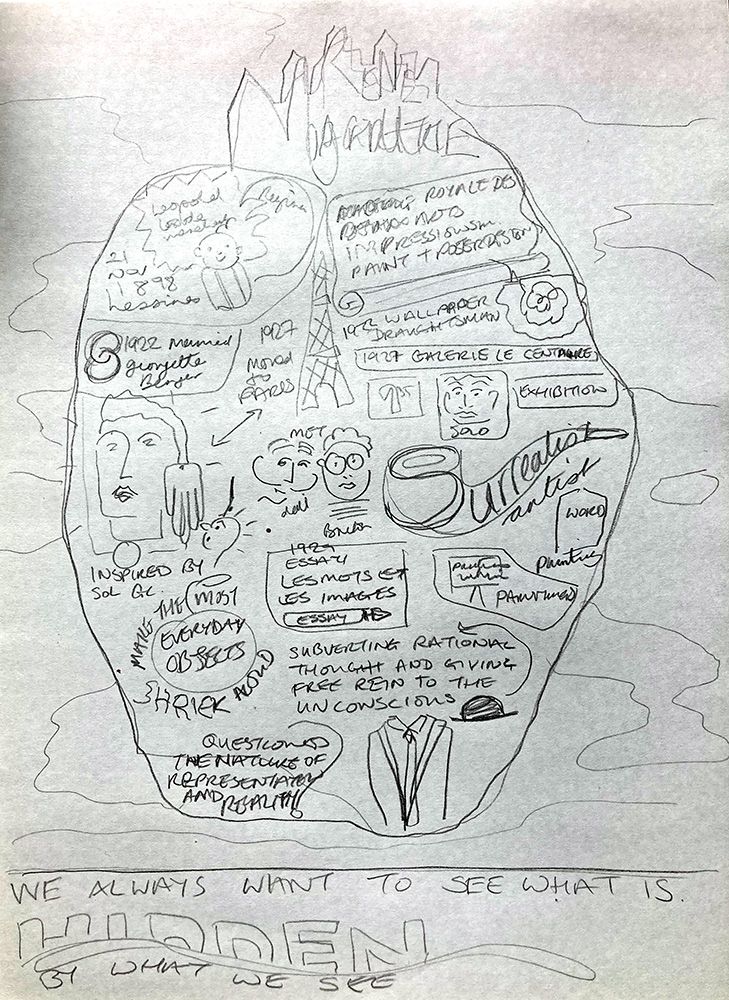 MAGRITTE
Leopold
Regina
21
Nov
1898
Lessines
ROYALE DES
BEAUX ARTS
IMPRESSIONISM.
PAINT + POSTER DESIGN
1922 WALLPAPER
DRAUGHTSMAN
1922 Married
Georgette
Berger
1927
MOVED
to
PARIS
1927 GALERIE LE CENTAURE
SOLO
EXHIBITION
MET
dali
Breton
Surrealist
artist
WORD
Painting
INSPIRED BY
1929
ESSAY
LES MOTS ET
LES IMAGES
ESSAY
PAINTINGS
MAKE THE MOST
EVERYDAY
OBJECTS
SHRIEK ALOUD
SUBVERTING RATIONAL
THOUGHT AND GIVING
FREE REIN TO THE
UNCONSCIOUS
QUESTIONED
THE NATURE OF
REPRESENTATION
AND REALITY
WE ALWAYS WANT TO SEE WHAT IS.
HIDDEN
BY WHAT WE SEE